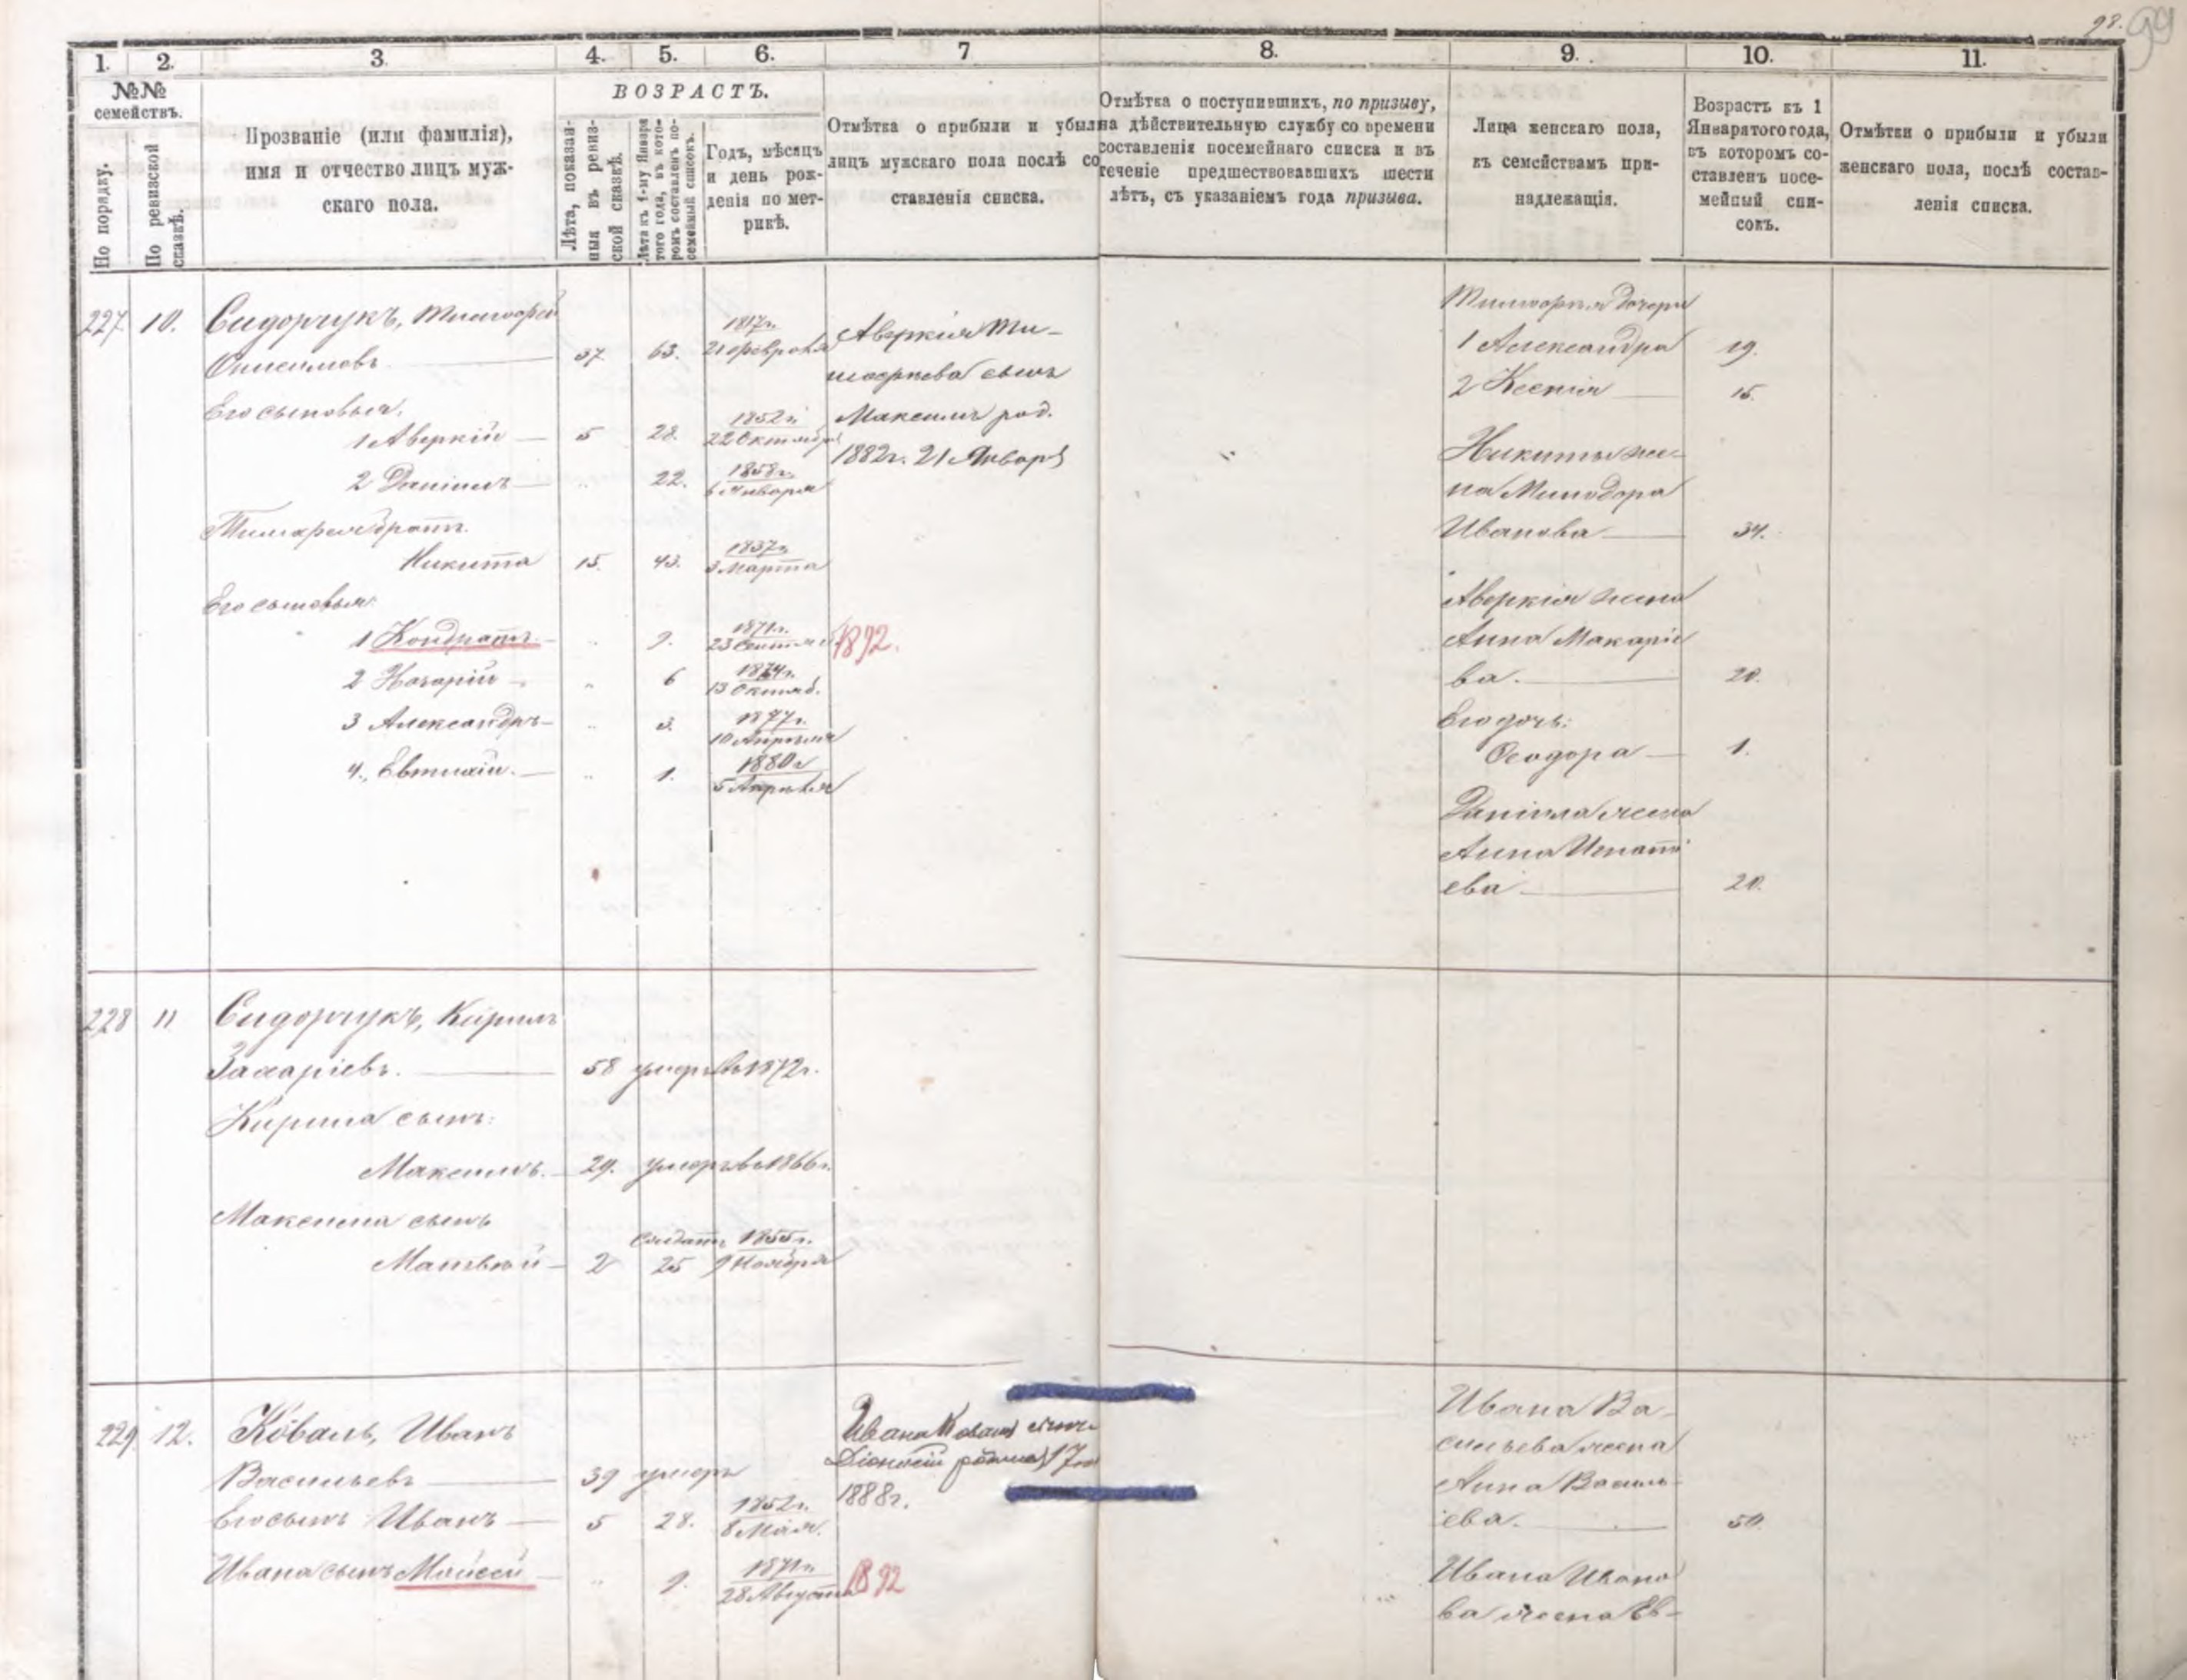 98.
99
1. 2. 3. 4. 5. 6. 7 8. 9. 10. 11.
№№ семействъ.
По порядку.
По ревизской сказкѣ.
Прозваніе (или фамилія),
имя и отчество лицъ муж-
скаго пола.
ВОЗРАСТЪ.
Лѣта, показан-
ныя въ ревиз-
ской сказкѣ.
Лѣта къ 1-му Января
того года, въ кото-
ромъ составленъ по-
семейный списокъ.
Годъ, мѣсяцъ
и день рож-
денія по мет-
рикѣ.
Отмѣтка о прибыли и убыли
лицъ мужскаго пола послѣ со
ставленія списка.
Отмѣтка о поступившихъ, по призыву,
на дѣйствительную службу со времени
составленія посемейнаго списка и въ
теченіе предшествовавшихъ шести
лѣтъ, съ указаніемъ года призыва.
Лица женскаго пола,
къ семействамъ при-
надлежащія.
Возрастъ къ 1
Января того года,
въ которомъ со-
ставленъ посе-
мейный спи-
сокъ.
Отмѣтки о прибыли и убыли
женскаго пола, послѣ состав-
ленія списка.
227 10. Сидорчукъ, Тимофей
Онисимовъ 37. 63. 1817г.
21 Февраля
Его сыновья,
1 Аверкій 5 28. 1852г.
22 Октября
2 Даніилъ „ 22. 1858г.
6 Января
Тимофея братъ.
Никита 15. 43. 1837г.
3 Марта
Его сыновья:
1 Кондратъ. „ 9. 1871г.
23 Сентя 1892.
2 Назарій „ 6 1874г.
13 Октяб.
3 Александръ „ 3. 1877г.
10 Апрѣля
4., Евтихій. „ 1. 1880г
5 Апрѣля
Аверкія Ти-
мофеева сынъ
Максимъ род.
1882г. 21 Января
Тимофея дочери
1 Александра 19.
2 Ксенія 15.
Никиты же-
на Минодора
Иванова 34.
Аверкія жена
Анна Макаріе
ва. 20.
Его дочь:
Ѳеодора 1.
Даніила жена
Анна Игнаті
ева 20.
228 11 Сидорчукъ, Кирилъ
Захаріевъ. 58 умеръ въ 1872г.
Кирила сынъ:
Максимъ. 29. умеръ въ 1866г.
Максима сынъ
Матвѣй 2 солдатъ 25 1855г.
9 Ноября
229 12. Коваль, Иванъ
Васильевъ 39 умеръ
Его сынъ Иванъ 5 28. 1852г.
8 Мая.
Ивана сынъ Моисей „ 9. 1871г.
28 Августа 1892
Ивана Коваля сынъ
Діонисій родился 17
1888г.
Ивана Ва-
сильева жена
Анна Василь-
ева. 50.
Ивана Ивано
ва жена Ев-